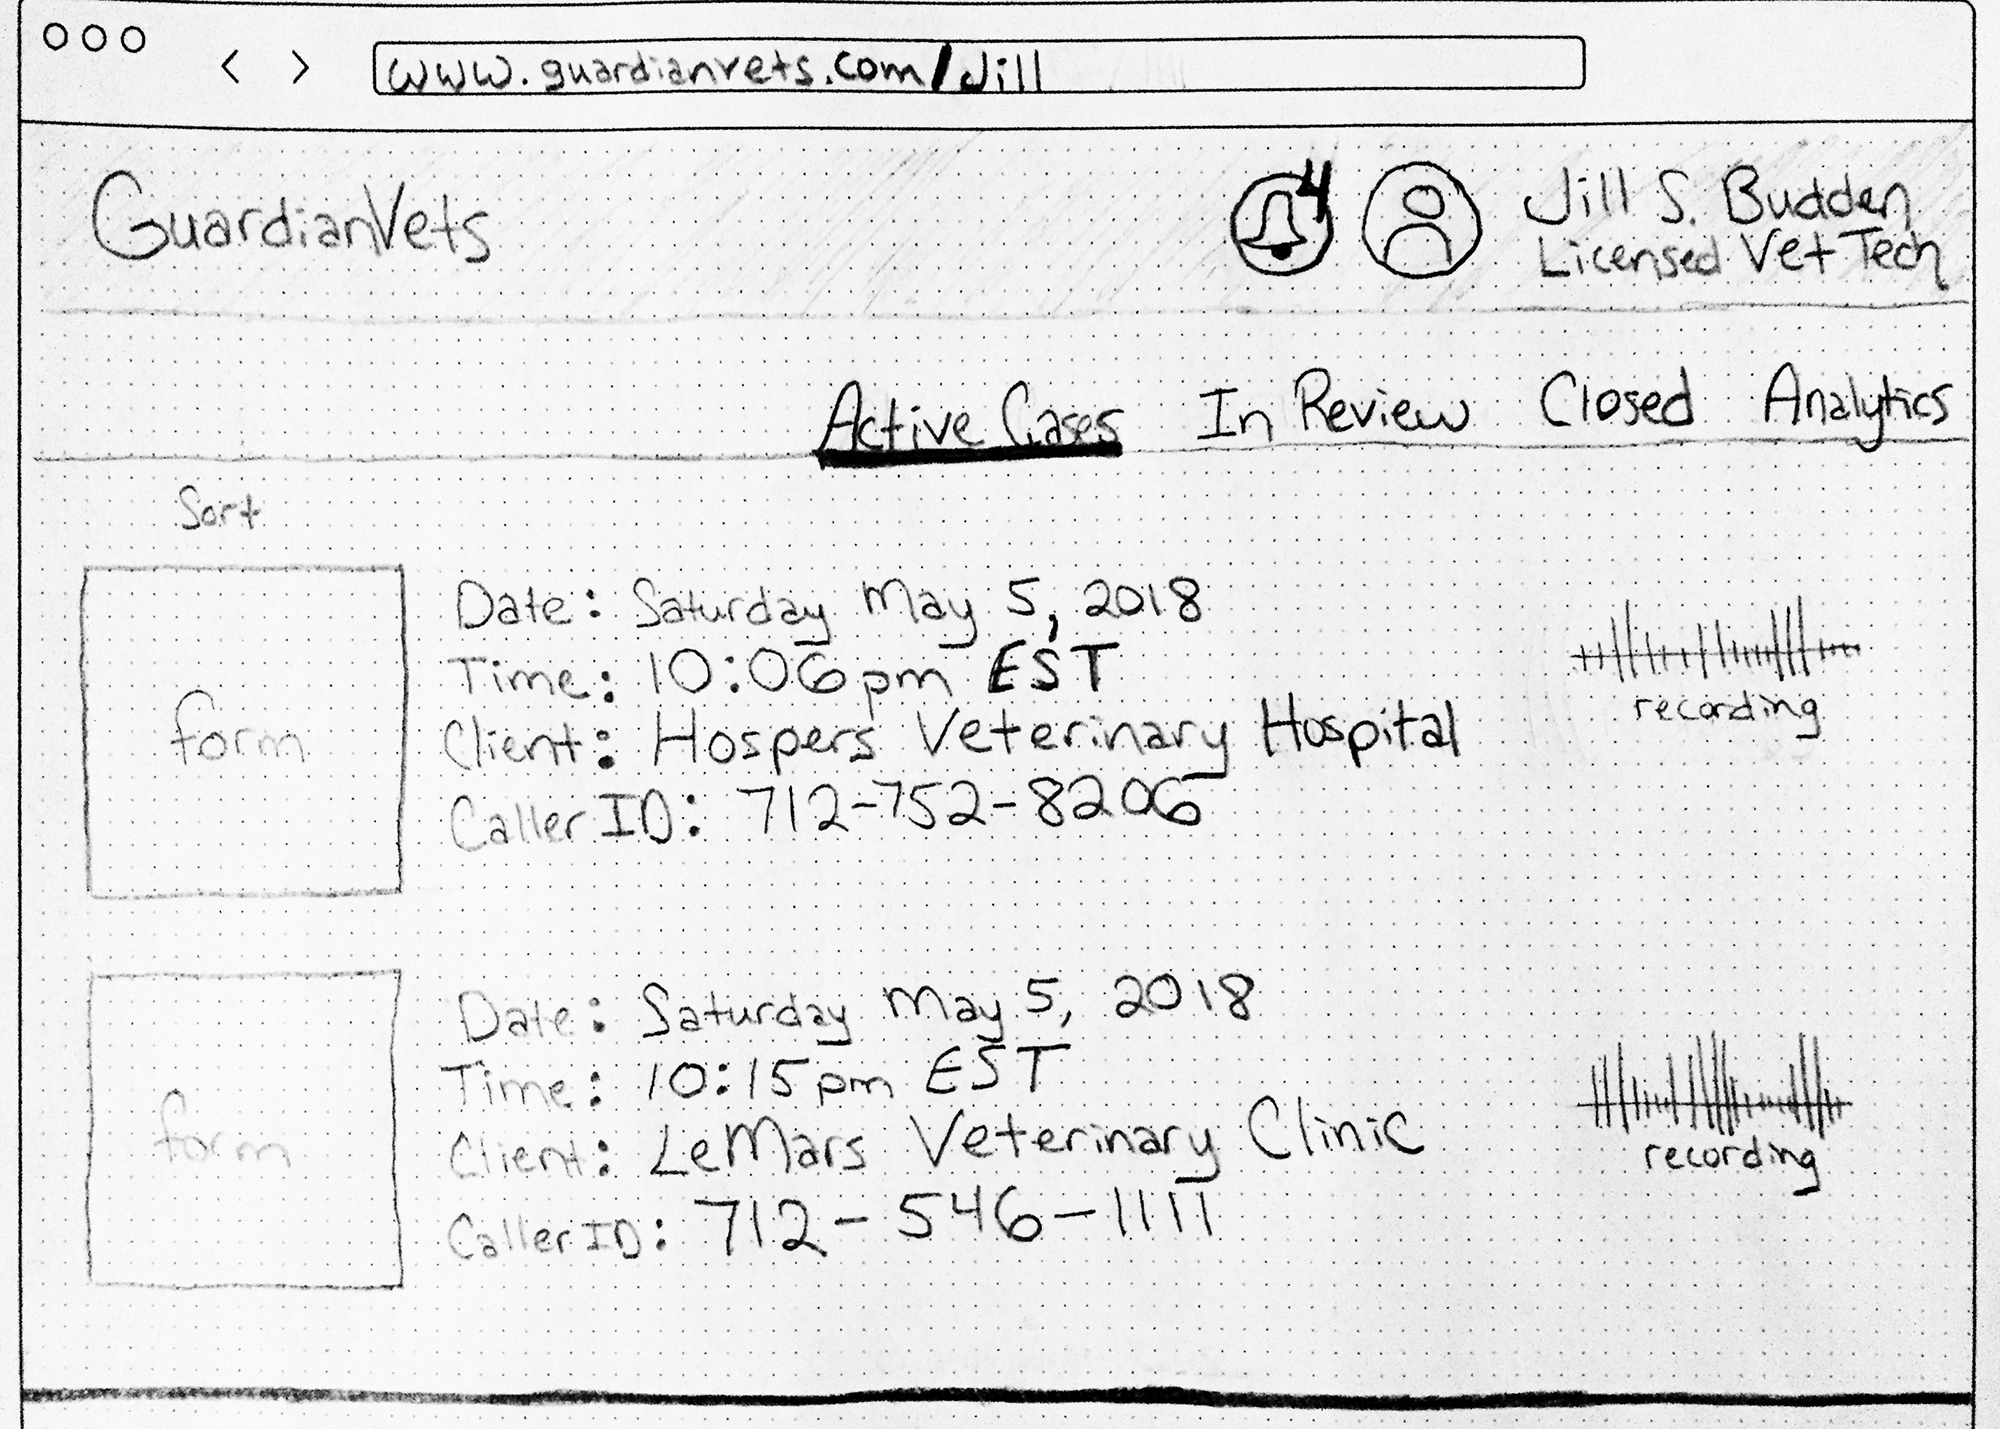 www.guardianvets.com/Jill
GuardianVets
4
Jill S. Budden
Licensed Vet Tech
Active Cases In Review Closed Analytics
Sort
form
Date: Saturday May 5, 2018
Time: 10:06pm EST
Client: Hospers Veterinary Hospital
Caller ID: 712-752-8206
recording
form
Date: Saturday May 5, 2018
Time: 10:15pm EST
Client: LeMars Veterinary Clinic
Caller ID: 712-546-1111
recording